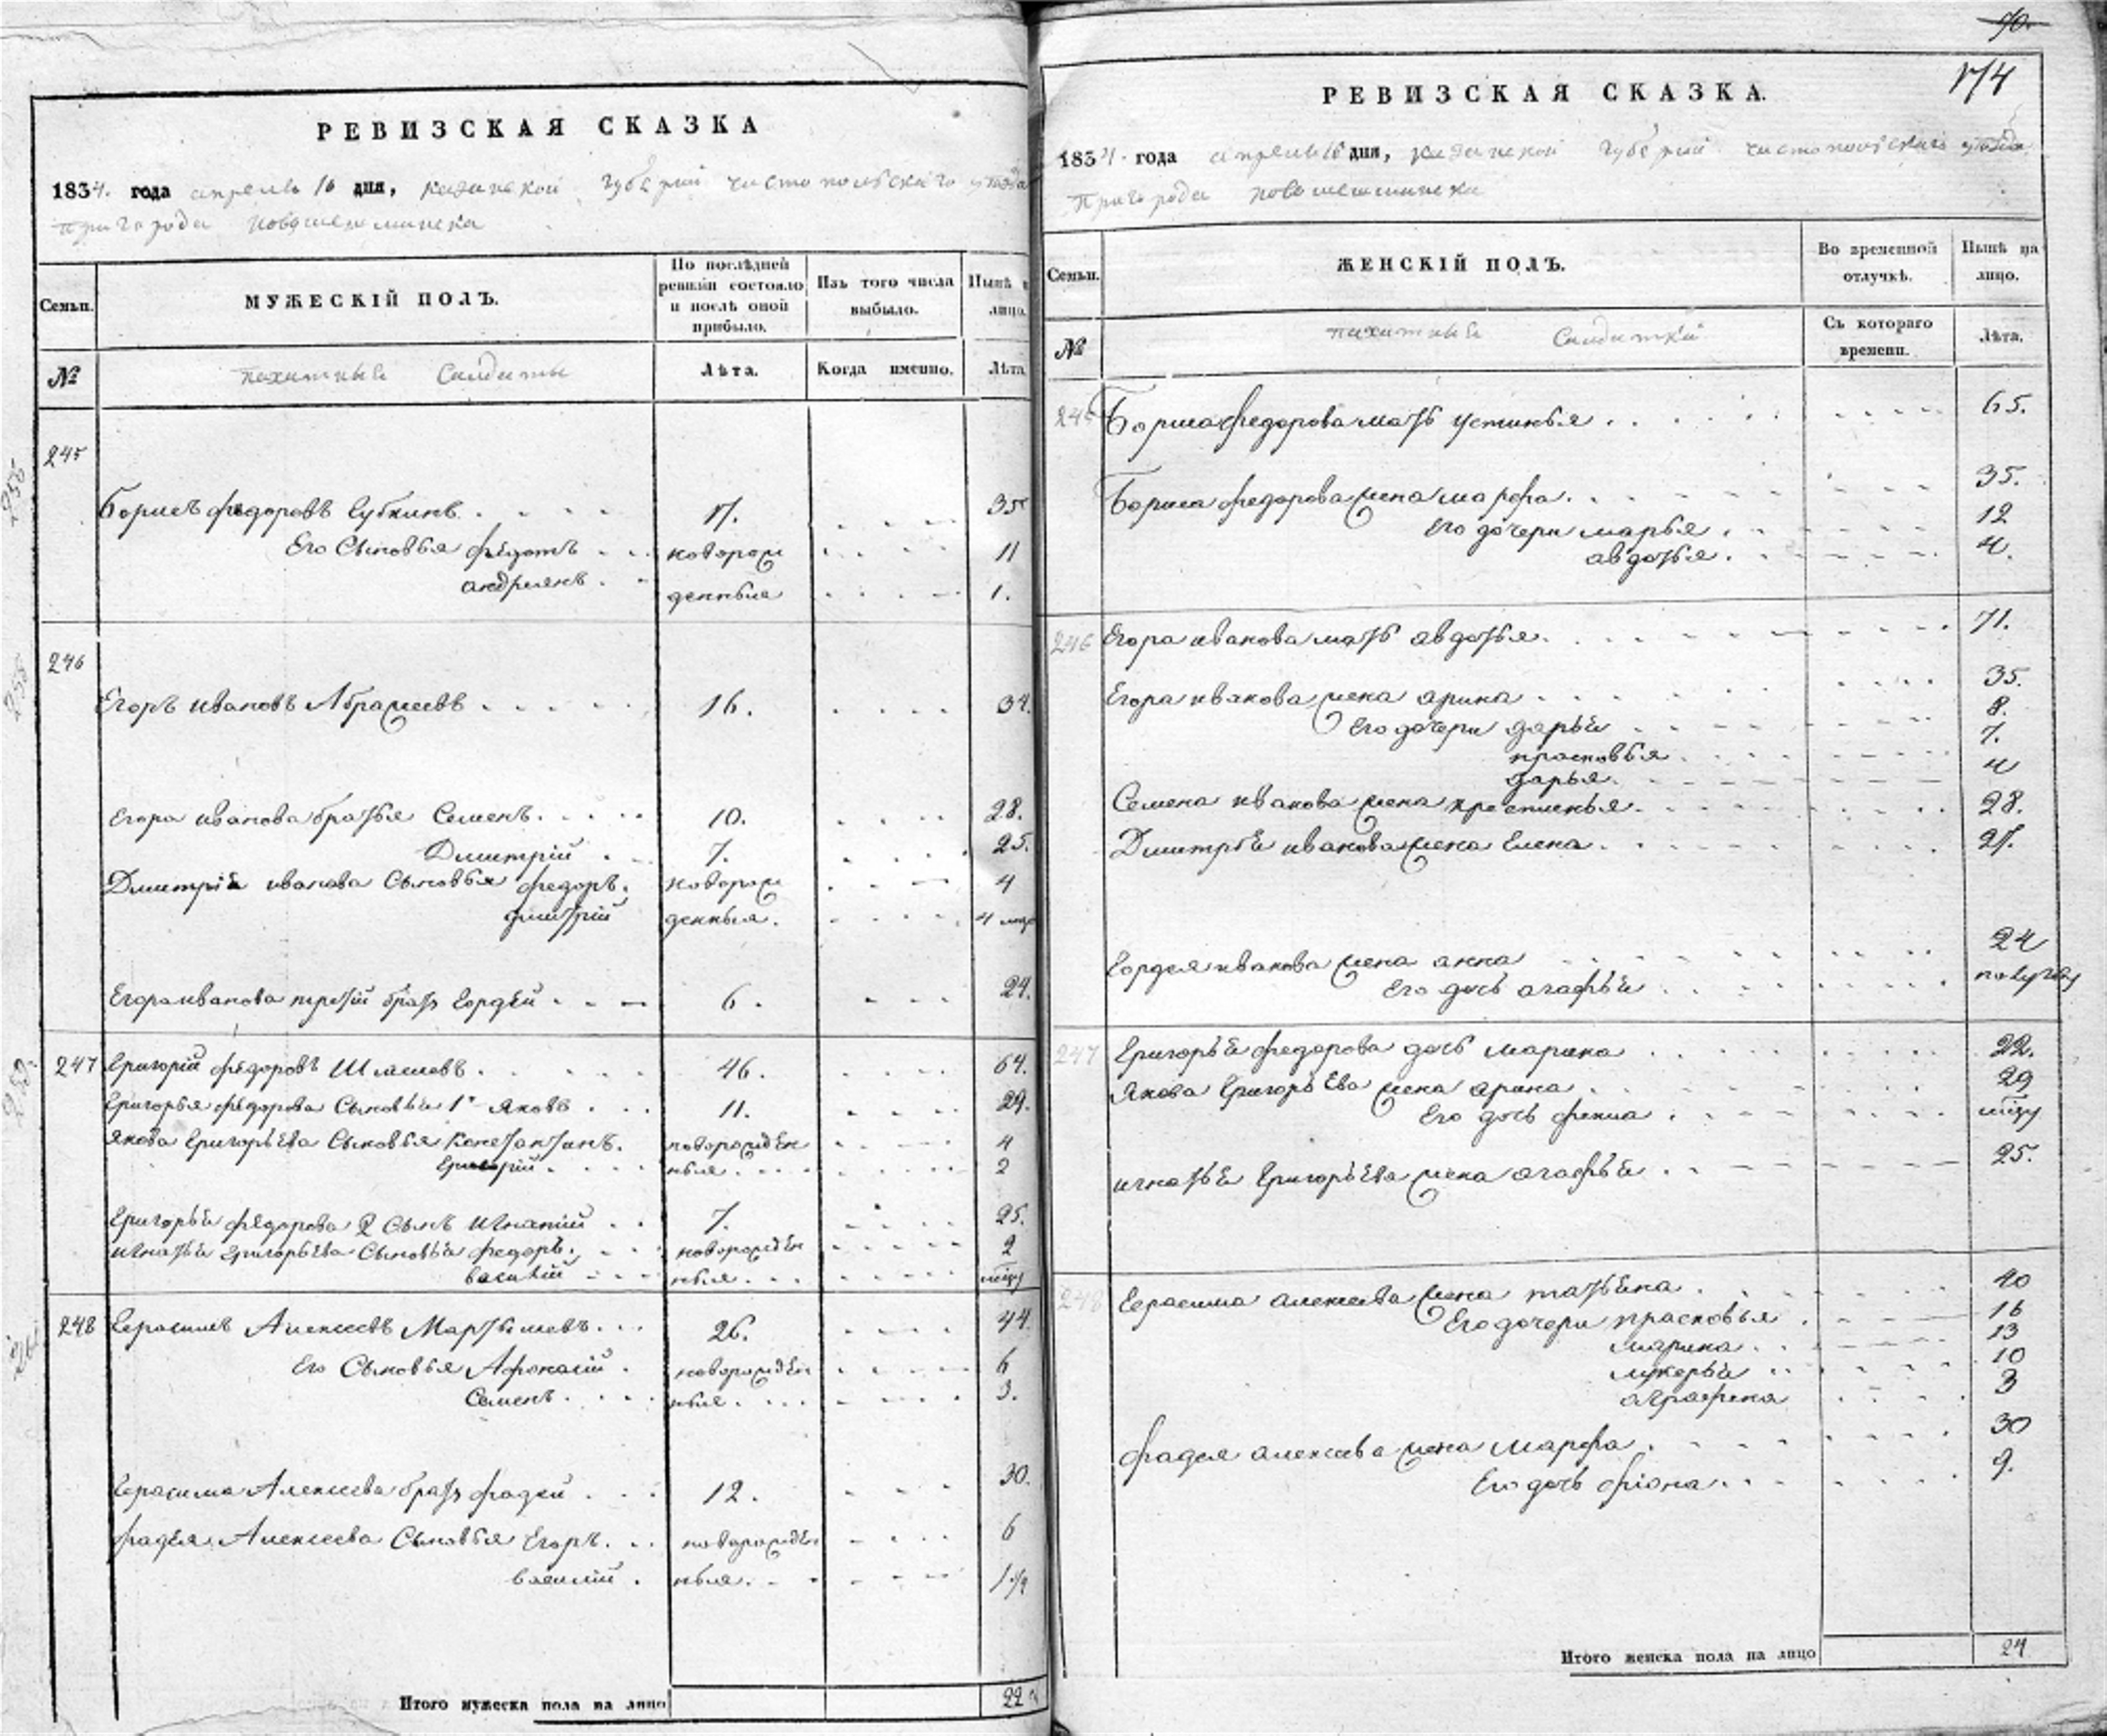 РЕВИЗСКАЯ СКАЗКА
1834. года апреля 16 дня, казанской губернии чистопольскаго уезда
Пригорода Новошешминска
Семьи.
МУЖЕСКІЙ ПОЛЪ.
По послѣдней ревизіи состояло и послѣ оной прибыло.
Изъ того числа выбыло.
Нынѣ на лицо.
№
пахатные Солдаты
Лѣта.
Когда именно.
Лѣта
245
Борисъ федоровъ Губкинъ 17. 35
Его Сыновья федотъ новорож 11
андреянъ денныя 1.
246
Егоръ ивановъ Абрамовъ 16. 34.
Егора иванова братья Семенъ. 10. 28.
Дмитрій 7. 25.
Дмитрія иванова Сыновья федоръ. новорож 4
дмитрій денныя. 4 мце
Егора иванова третій братъ Гордей 6. 24.
247 Григорій федоровъ Шляповъ 46. 64.
Григорья федорова Сыновья 1й яковъ 11. 29.
якова Григорьева Сыновья Константинъ. новорожден 4
Григорій. ныя. 2
Григорья федорова 2 Сынъ игнатій 7. 25.
игнатья григорьева Сыновья федоръ. новорожден 2
василій ныя.
248 Герасимъ Алексеевъ Мартышевъ. 26. 44.
Его Сыновья Афонасій новорожден 6
Семенъ. ныя. 3.
Герасима Алексеева братъ фадей 12. 30.
фадея Алексеева Сыновья Егоръ. новорожден 6
василій ныя. 1 1/2
Итого мужеска пола на лицо 22
70.
174
РЕВИЗСКАЯ СКАЗКА.
1834. года апреля 16 дня, казанской губернии чистопольскаго уезда
Пригорода новошешминска
Семьи.
ЖЕНСКІЙ ПОЛЪ.
Во временной отлучкѣ.
Нынѣ на лицо.
№
пахатные Солдатки
Съ котораго времени.
Лѣта.
245 Бориса федорова мать устинья 65.
Бориса федорова жена марфа. 35.
Его дочери марья 12
авдотья. 4.
246 Егора иванова мать авдотья. 71.
Егора иванова жена арина 35.
Его дочери дарья 8.
прасковья 7.
дарья. 4
Семена иванова жена крестинья. 28.
Дмитрея иванова жена Елена. 27.
Гордея иванова жена анна 24
Его дочь агафья полугоду
247 Григорья федорова дочь марина 22.
Якова Григорьева жена арина 29
Его дочь фекла
игнатья Григорьева жена агафья 25.
248 Герасима алексеева жена татьяна 40
Его дочери прасковья 16
марина 13
лукерья 10
аграфена 3
фадея алексеева жена марфа. 30
Его дочь фіона. 9.
Итого женска пола на лицо 24